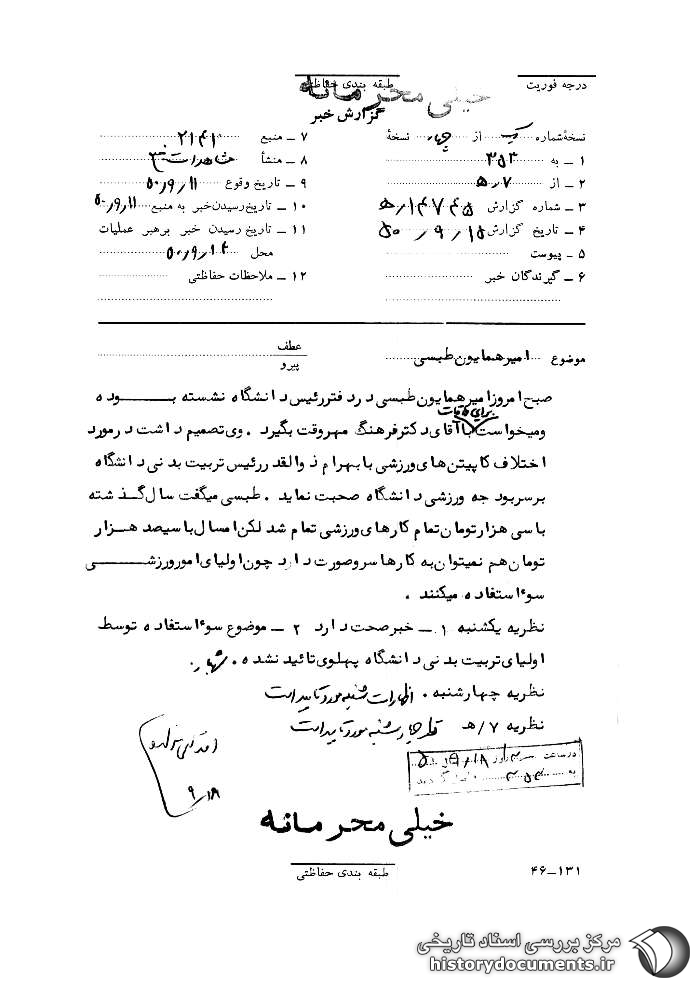 درجه فوریت
طبقه بندی حفاظتی
خیلی محرمانه
گزارش خبر
نسخهٔ شماره یک از چهار نسخهٔ
۱ ـ به ۳۵۲
۲ ـ از ۷/ه
۳ ـ شماره گزارش ۱۴۷۴۵/ه
۴ ـ تاریخ گزارش ۱۵/۹/۵۰
۵ ـ پیوست
۶ ـ گیرندگان خبر
۷ ـ منبع ۲۱۴۱
۸ ـ منشأ مشاهدات
۹ ـ تاریخ وقوع ۱۱/۹/۵۰
۱۰ ـ تاریخ رسیدن خبر به منبع ۱۱/۹/۵۰
۱۱ ـ تاریخ رسیدن خبر برهبر عملیات
محل ۱۴/۹/۵۰
۱۲ ـ ملاحظات حفاظتی
موضوع امیرهمایون طبسی
عطف
پیرو
صبح امروز امیرهمایون طبسی در دفتر رئیس دانشگاه نشسته بوده
ومیخواست برای ملاقات با آقای دکتر فرهنگ مهر وقت بگیرد . وی تصمیم داشت در مورد
اختلاف کاپیتن های ورزشی با بهرام ذوالقدر رئیس تربیت بدنی دانشگاه
برسر بودجه ورزشی دانشگاه صحبت نماید . طبسی میگفت سال گذشته
با سی هزار تومان تمام کارهای ورزشی تمام شد لکن امسال با سیصد هزار
تومان هم نمیتوان به کارها سر و صورت دارد چون اولیای امور ورزشی
سوٴ استفاده میکنند .
نظریه یکشنبه ۱ ـ خبر صحت دارد ۲ ـ موضوع سوٴ استفاده توسط
اولیای تربیت بدنی دانشگاه پهلوی تائید نشده .
نظریه چهارشنبه . اظهارات شنبه مورد تایید است
نظریه ۷/ه نظر چهارشنبه مورد تایید است
در ساعت روز ۱۸/۹/۵۰
به ۳۵۲
۹/۱۸
خیلی محرمانه
طبقه بندی حفاظتی
۴۶-۱۳۱
مرکز بررسی اسناد تاریخی
historydocuments.ir